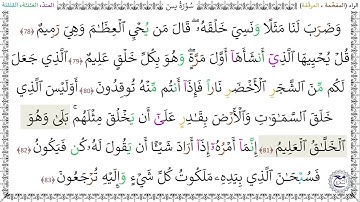 الراء (المفخمة ، المرققة) سُورَةُ يسٓ المد، الغنة، القلقلة
وَضَرَبَ لَنَا مَثَلًا وَنَسِيَ خَلْقَهُۥ ۖ قَالَ مَن يُحْيِ ٱلْعِظَٰمَ وَهِيَ رَمِيمٌ (78)
قُلْ يُحْيِيهَا ٱلَّذِيٓ أَنشَأَهَآ أَوَّلَ مَرَّةٍ ۖ وَهُوَ بِكُلِّ خَلْقٍ عَلِيمٌ (79) ٱلَّذِي جَعَلَ
لَكُم مِّنَ ٱلشَّجَرِ ٱلْأَخْضَرِ نَارًا فَإِذَآ أَنتُم مِّنْهُ تُوقِدُونَ (80) أَوَلَيْسَ ٱلَّذِي
خَلَقَ ٱلسَّمَٰوَٰتِ وَٱلْأَرْضَ بِقَٰدِرٍ عَلَىٰٓ أَن يَخْلُقَ مِثْلَهُم ۚ بَلَىٰ وَهُوَ
ٱلْخَلَّٰقُ ٱلْعَلِيمُ (81) إِنَّمَآ أَمْرُهُۥٓ إِذَآ أَرَادَ شَيْـًٔا أَن يَقُولَ لَهُۥ كُن فَيَكُونُ (82)
فَسُبْحَٰنَ ٱلَّذِي بِيَدِهِۦ مَلَكُوتُ كُلِّ شَيْءٍ وَإِلَيْهِ تُرْجَعُونَ (83)